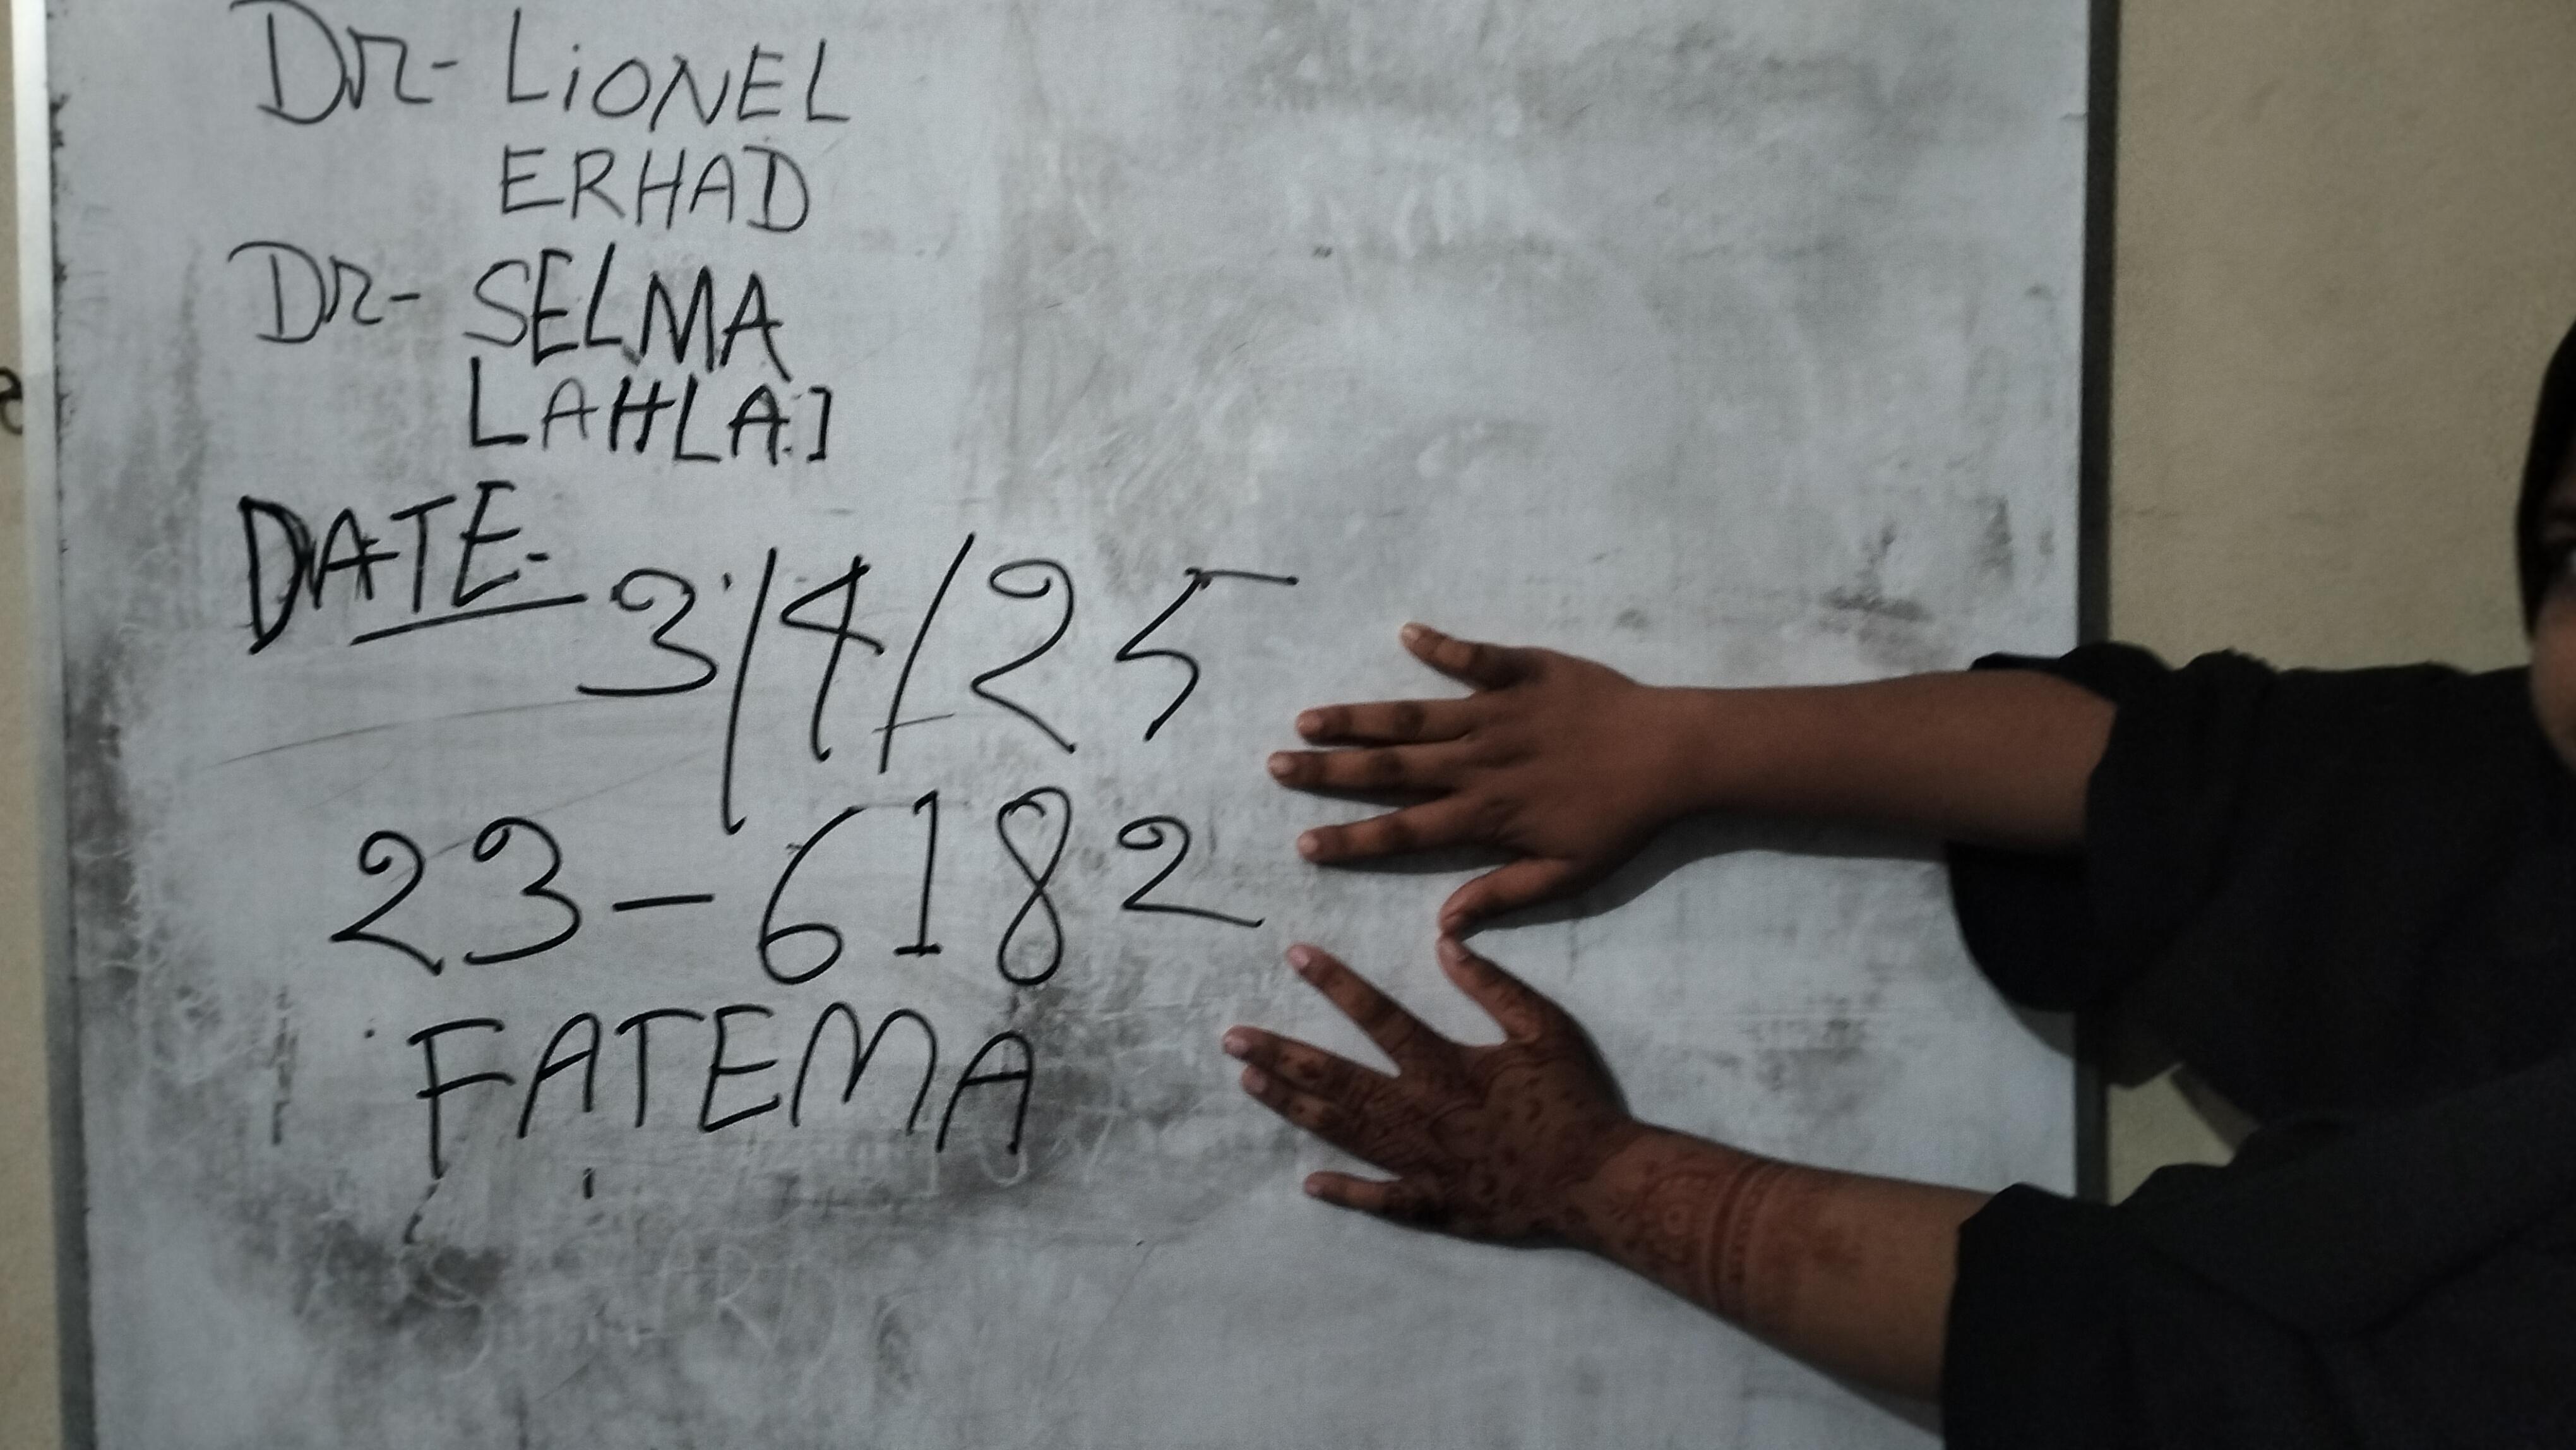 Dr- LiONEL
ERHAD
Dr- SELMA
LAHLAJ
DATE- 3/4/25
23-6182
FATEMA